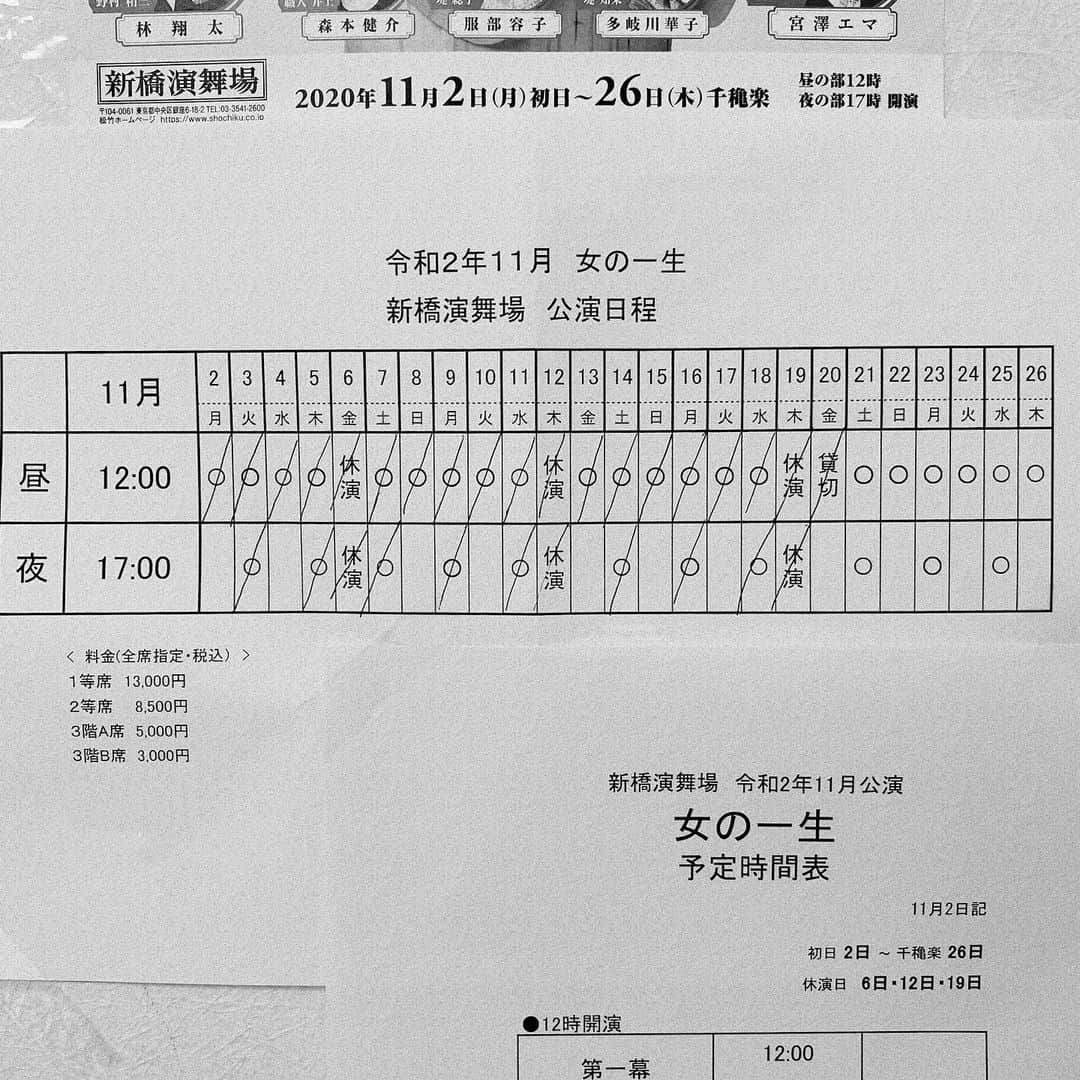 林 翔 太
森 本 健 介
服 部 容 子
多 岐 川 華 子
宮 澤 エ マ
新橋演舞場
〒104-0061 東京都中央区銀座6-18-2 TEL:03-3541-2600
松竹ホームページ https://www.shochiku.co.jp
2020年11月2日(月)初日～26日(木)千穐楽
昼の部12時
夜の部17時 開演
令和2年11月 女の一生
新橋演舞場 公演日程
11月 2 3 4 5 6 7 8 9 10 11 12 13 14 15 16 17 18 19 20 21 22 23 24 25 26
月 火 水 木 金 土 日 月 火 水 木 金 土 日 月 火 水 木 金 土 日 月 火 水 木
昼 12:00 ○ ○ ○ ○ 休演 ○ ○ ○ ○ ○ 休演 ○ ○ ○ ○ ○ ○ 休演 貸切 ○ ○ ○ ○ ○ ○
夜 17:00 ○ ○ 休演 ○ ○ ○ 休演 ○ ○ ○ 休演 ○ ○ ○
＜ 料金(全席指定・税込) ＞
1等席 13,000円
2等席 8,500円
3階A席 5,000円
3階B席 3,000円
新橋演舞場 令和2年11月公演
女の一生
予定時間表
11月2日記
初日 2日 ～ 千穐楽 26日
休演日 6日・12日・19日
●12時開演
第一幕 12:00